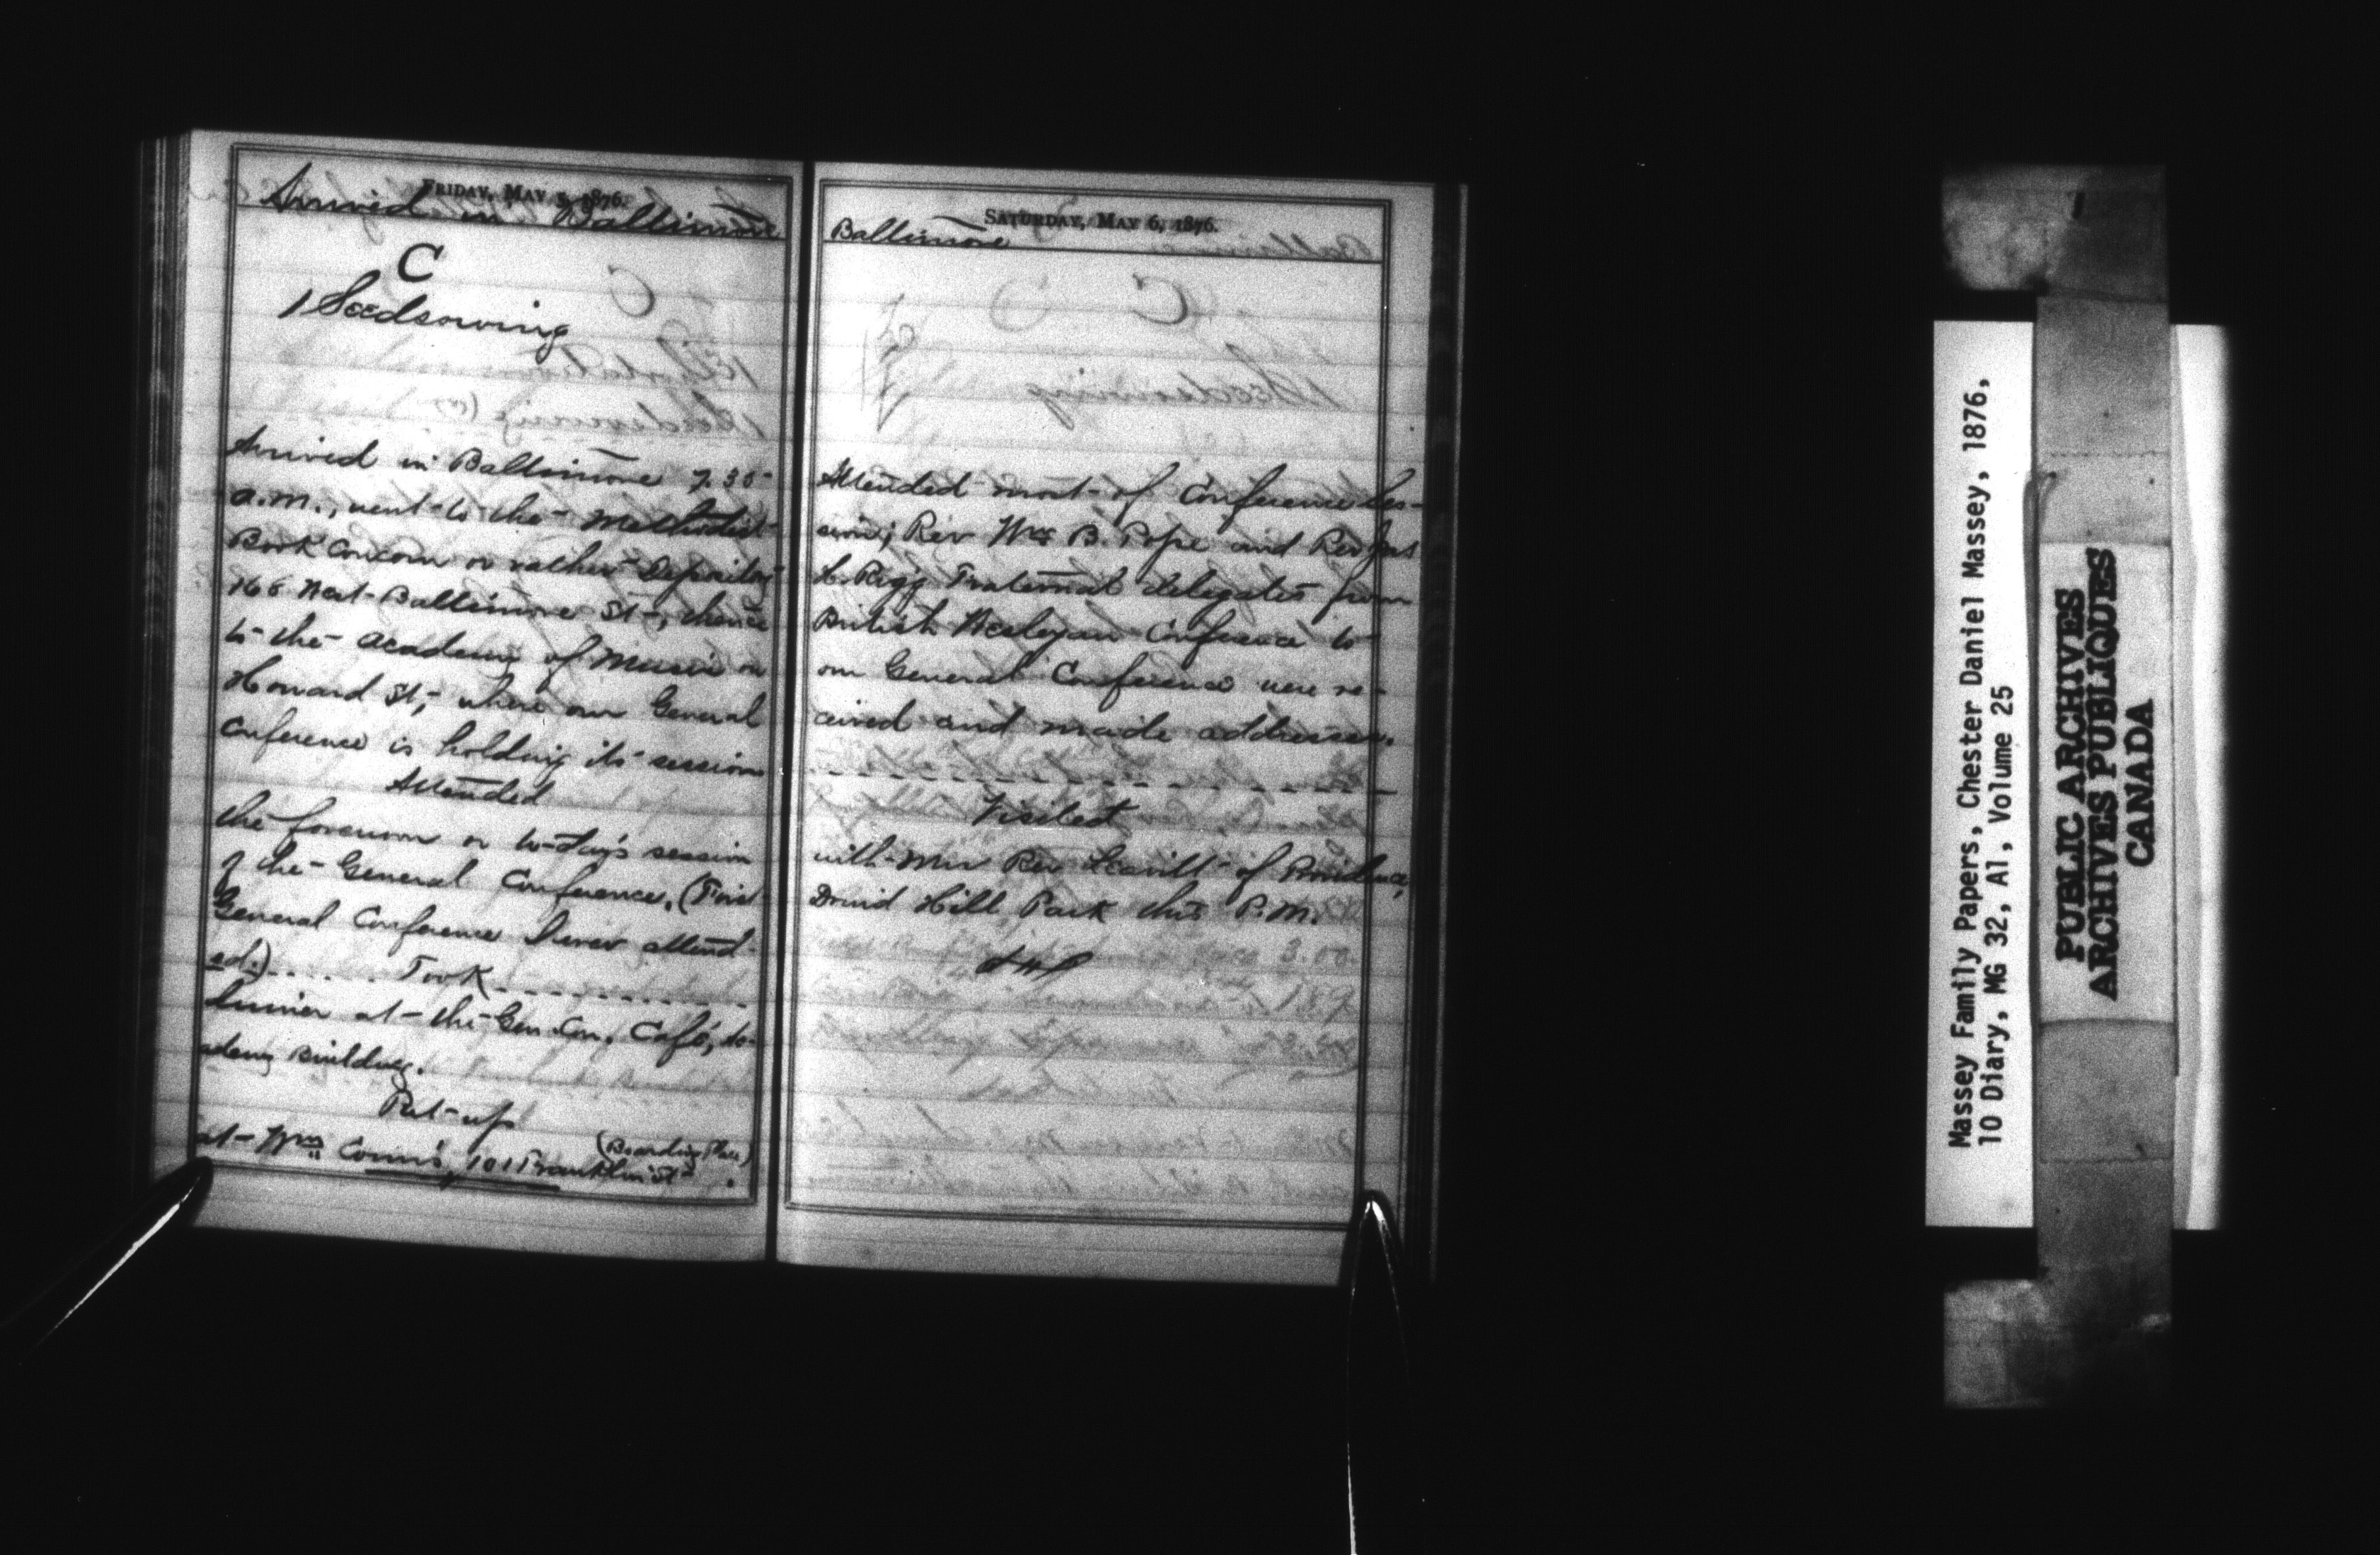 FRIDAY, MAY 5, 1876.
Arrived in Baltimore
C
1 Seedsowing
Arrived in Baltimore 7.35
a.m., went to the Methodist
Book Concern or rather Depository
168 West Baltimore St., thence
to the Academy of Music on
Howard St., where our General
Conference is holding its session
Attended
the forenoon or to-day's session
of the General Conference. (First
General Conference I ever attend-
ed.) ..... Took
dinner at the Gen. Con. Café, Ac-
ademy Building.
Put up
(Boarding Place)
at Wm Corun's, 101 Franklin St.
SATURDAY, MAY 6, 1876.
Baltimore
Attended most of Conference Ses-
sion; Rev Wm B. Pope and Rev Jas
H. Rigg Fraternal delegates from
British Wesleyan Conference to
our General Conference were re-
ceived and made addresses.
Visited
with Rev Leavitt of Providence,
Druid Hill Park this P.M.
Massey Family Papers, Chester Daniel Massey, 1876,
10 Diary, MG 32, A1, Volume 25
PUBLIC ARCHIVES
ARCHIVES PUBLIQUES
CANADA